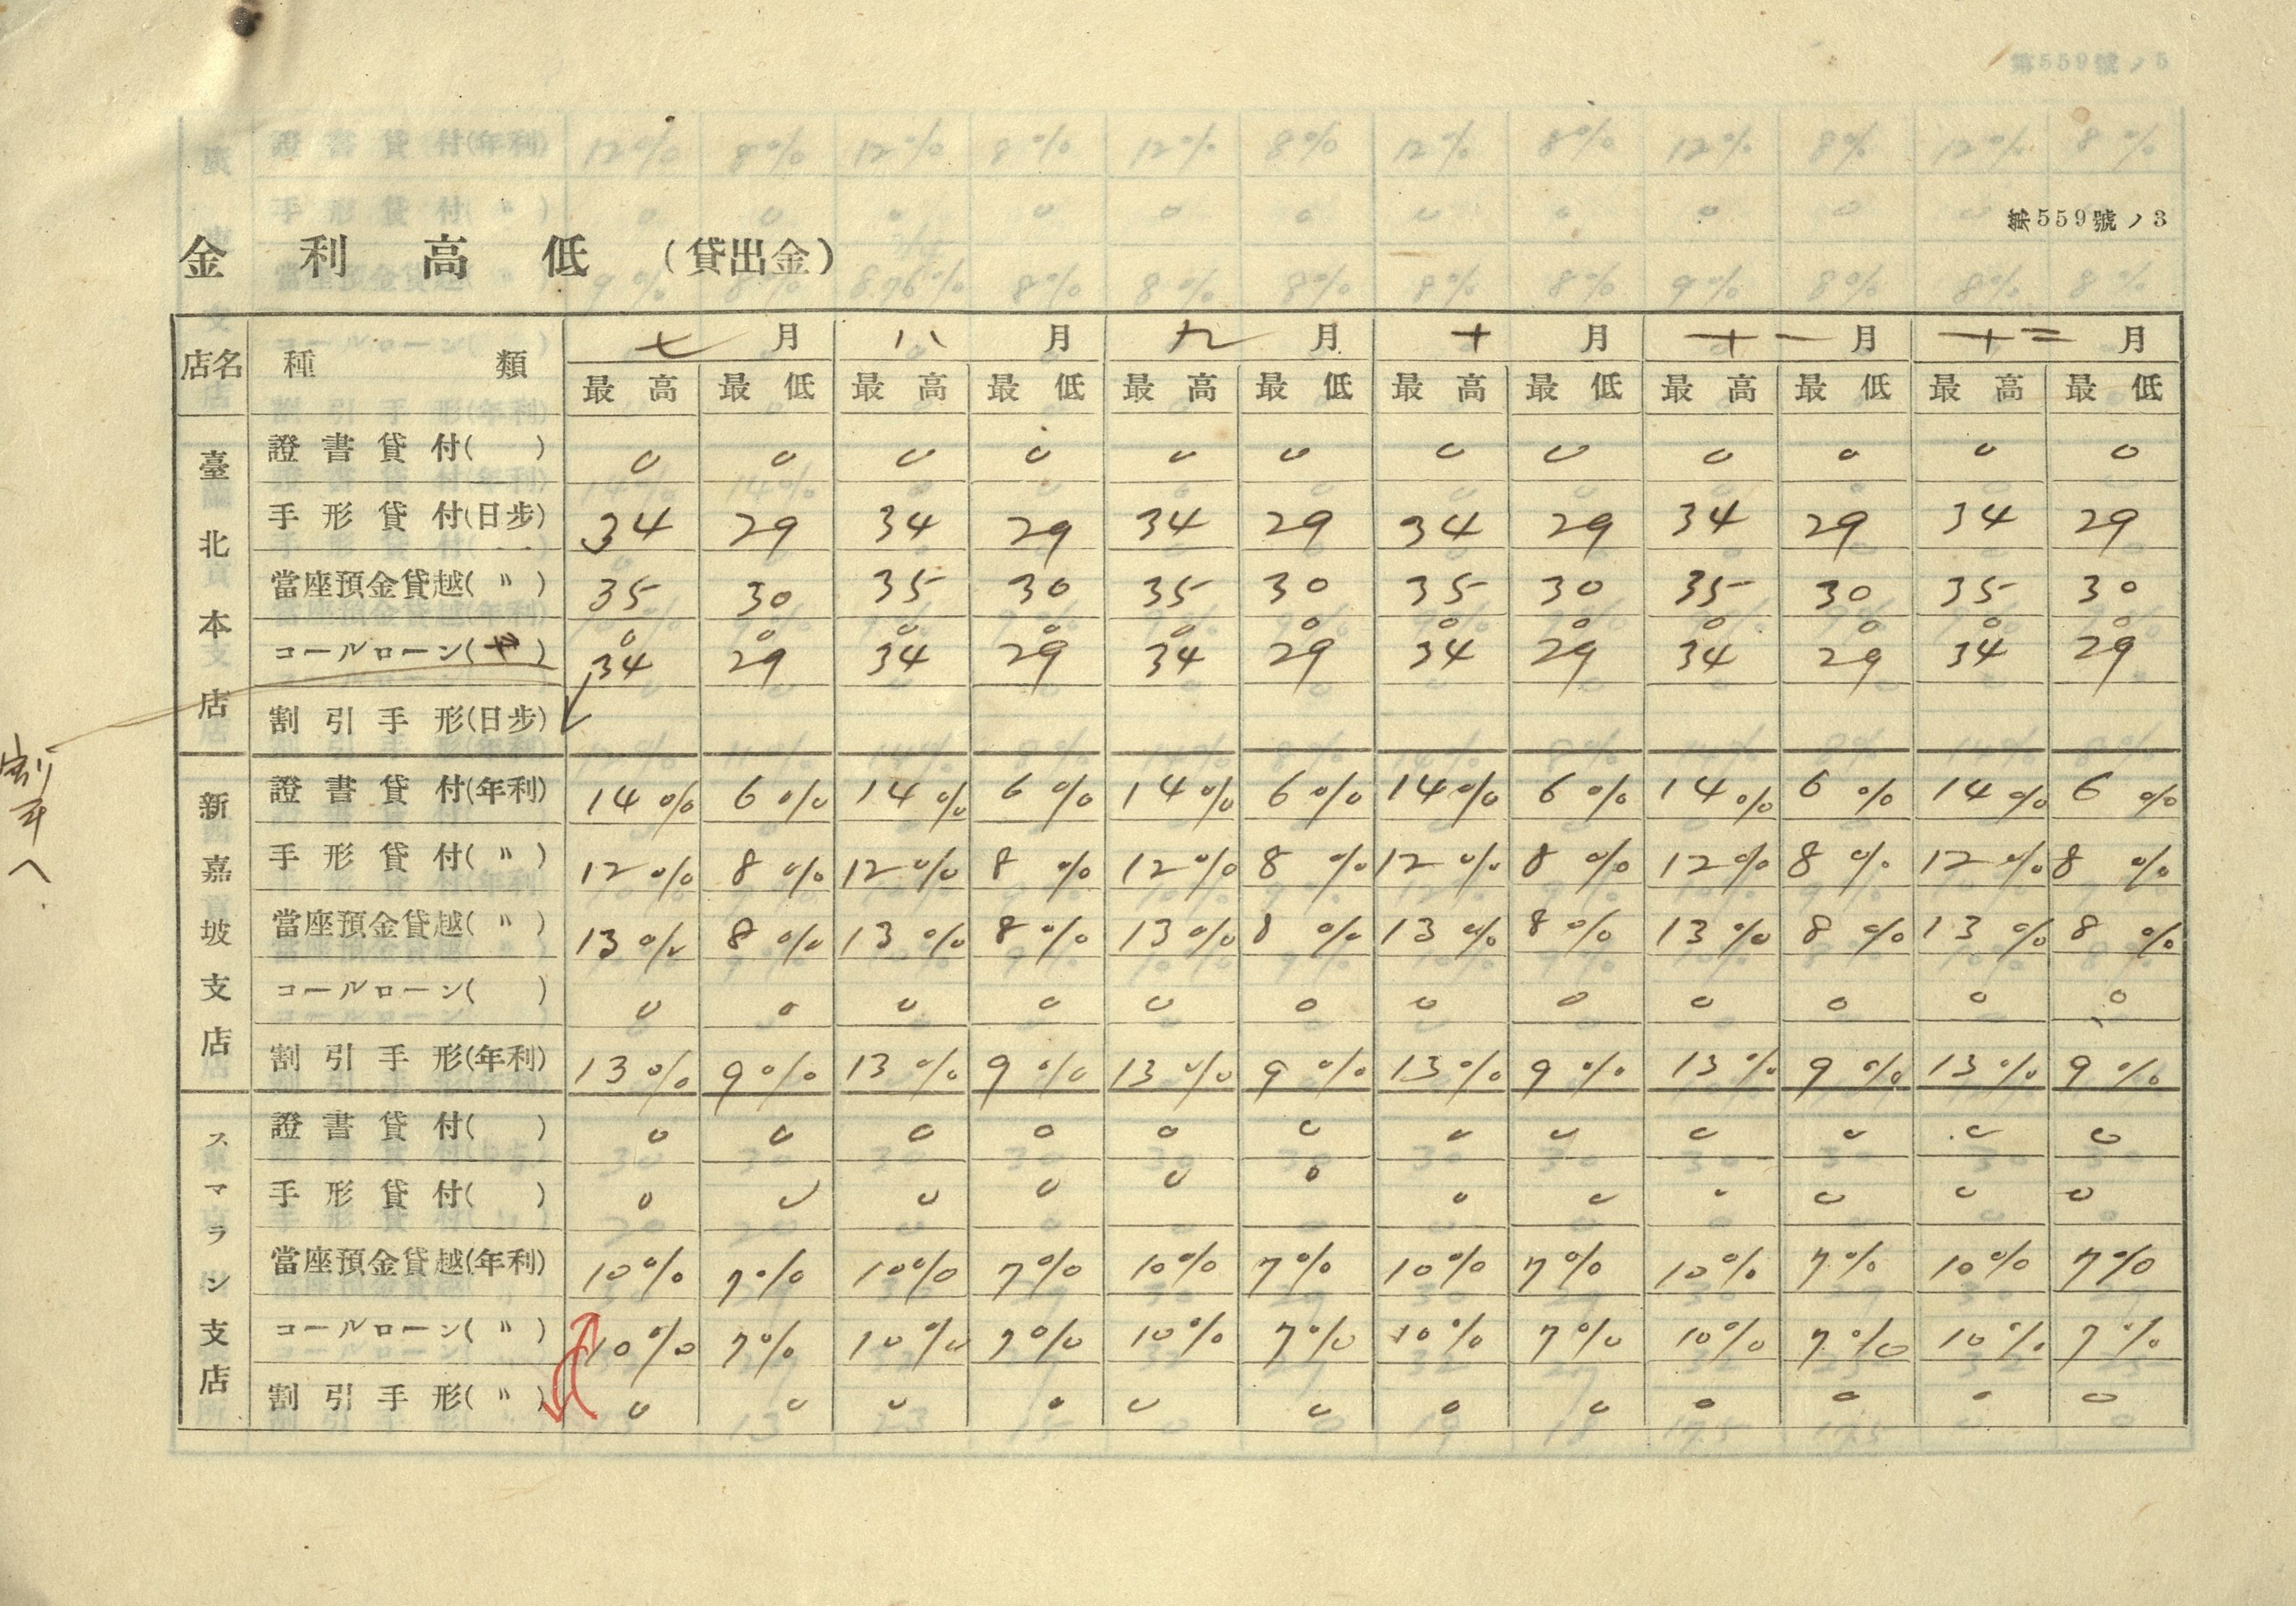 第559號ノ3
金利高低（貸出金）
店名 種類 七月 八月 九月 十月 十一月 十二月
最高 最低 最高 最低 最高 最低 最高 最低 最高 最低 最高 最低
臺北本店
證書貸付( ) 0 0 0 0 0 0 0 0 0 0 0 0
手形貸付(日步) 34 29 34 29 34 29 34 29 34 29 34 29
當座預金貸越(〃) 35 30 35 30 35 30 35 30 35 30 35 30
0 0 0 0 0 0 0 0 0 0 0 0
コールローン( ) 34 29 34 29 34 29 34 29 34 29 34 29
割引手形(日步)
割手へ
新嘉坡支店
證書貸付(年利) 14% 6% 14% 6% 14% 6% 14% 6% 14% 6% 14% 6%
手形貸付(〃) 12% 8% 12% 8% 12% 8% 12% 8% 12% 8% 12% 8%
當座預金貸越(〃) 13% 8% 13% 8% 13% 8% 13% 8% 13% 8% 13% 8%
コールローン( ) 0 0 0 0 0 0 0 0 0 0 0 0
割引手形(年利) 13% 9% 13% 9% 13% 9% 13% 9% 13% 9% 13% 9%
スマラン支店
證書貸付( ) 0 0 0 0 0 0 0 0 0 0 0 0
手形貸付( ) 0 0 0 0 0 0 0 0 0 0 0 0
當座預金貸越(年利) 10% 7% 10% 7% 10% 7% 10% 7% 10% 7% 10% 7%
コールローン(〃) 10% 7% 10% 7% 10% 7% 10% 7% 10% 7% 10% 7%
割引手形(〃) 0 0 0 0 0 0 0 0 0 0 0 0